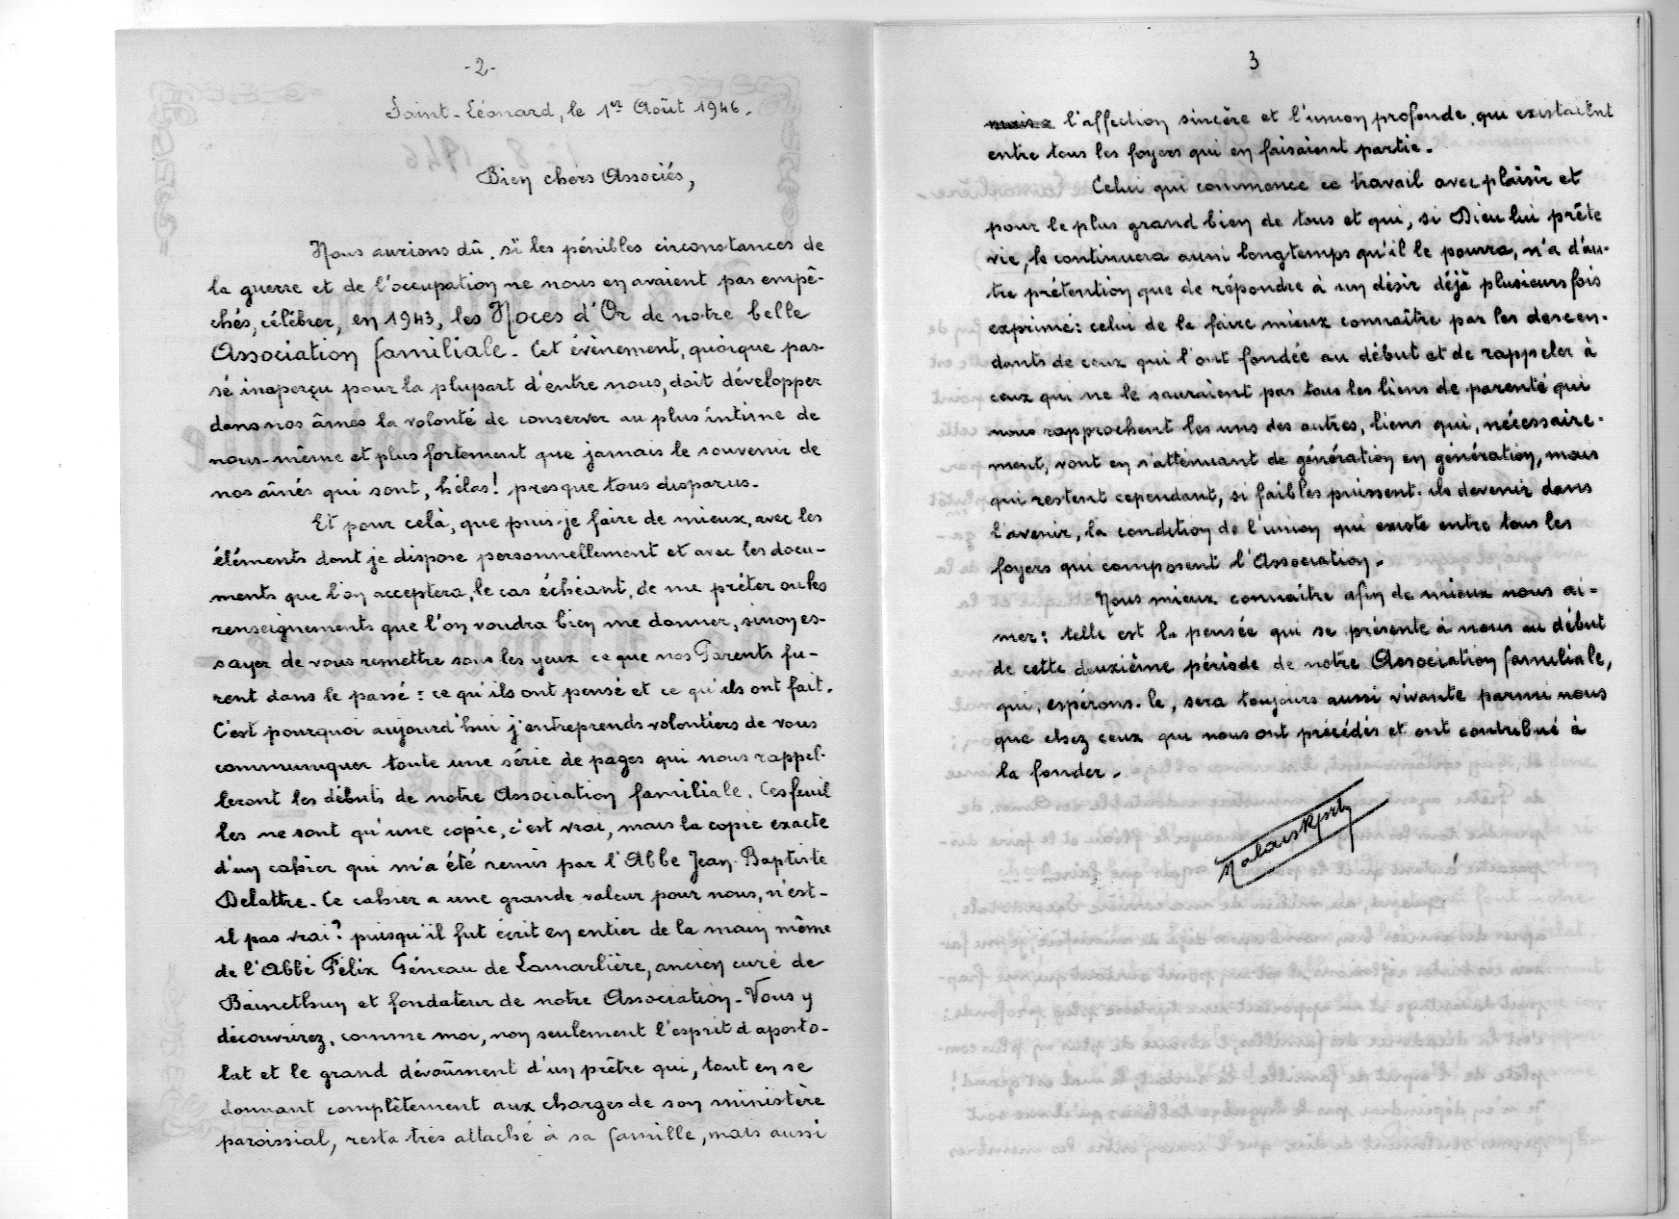 -2-
Saint-Léonard, le 1er Août 1946.
Bien chers Associés,
Nous aurions dû, si les pénibles circonstances de
la guerre et de l'occupation ne nous en avaient pas empê-
chés, célébrer, en 1943, les Noces d'Or de notre belle
Association familiale. Cet évènement, quoique pas-
sé inaperçu pour la plupart d'entre nous, doit développer
dans nos âmes la volonté de conserver au plus intime de
nous-même et plus fortement que jamais le souvenir de
nos aînés qui sont, hélas! presque tous disparus.
Et pour celà, que puis-je faire de mieux, avec les
éléments dont je dispose personnellement et avec les docu-
ments que l'on acceptera, le cas échéant, de me prêter ou les
renseignements que l'on voudra bien me donner, sinon es-
sayer de vous remettre sous les yeux ce que nos Parents fu-
rent dans le passé : ce qu'ils ont pensé et ce qu'ils ont fait.
C'est pourquoi aujourd'hui j'entreprends volontiers de vous
communiquer toute une série de pages qui nous rappel-
leront les débuts de notre Association familiale. Ces feuil
les ne sont qu'une copie, c'est vrai, mais la copie exacte
d'un cahier qui m'a été remis par l'Abbé Jean-Baptiste
Delattre. Ce cahier a une grande valeur pour nous, n'est-
il pas vrai? puisqu'il fut écrit en entier de la main même
de l'Abbé Félix Géneau de Lamarlière, ancien curé de
Bainethun et fondateur de notre Association. Vous y
découvrirez, comme moi, non seulement l'esprit d'aposto-
lat et le grand dévoûment d'un prêtre qui, tout en se
donnant complètement aux charges de son ministère
paroissial, resta très attaché à sa famille, mais aussi
3
l'affection sincère et l'union profonde qui existaient
entre tous les foyers qui en faisaient partie.
Celui qui commence ce travail avec plaisir et
pour le plus grand bien de tous et qui, si Dieu lui prête
vie, le continuera aussi longtemps qu'il le pourra, n'a d'au-
tre prétention que de répondre à un désir déjà plusieurs fois
exprimé: celui de la faire mieux connaître par les descen-
dants de ceux qui l'ont fondée au début et de rappeler à
ceux qui ne le sauraient pas tous les liens de parenté qui
nous rapprochent les uns des autres, liens qui, nécessaire-
ment, vont en s'atténuant de génération en génération, mais
qui restent cependant, si faibles puissent-ils devenir dans
l'avenir, la condition de l'union qui existe entre tous les
foyers qui composent l'Association.
Nous mieux connaître afin de mieux nous ai=
mer: telle est la pensée qui se présente à nous au début
de cette deuxième période de notre Association familiale,
qui, espérons-le, sera toujours aussi vivante parmi nous
que chez ceux qui nous ont précédés et ont contribué à
la fonder.